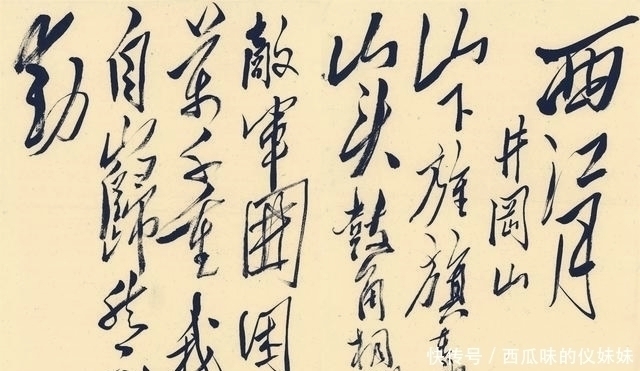 西江月
井岡山
山下旌旗在
山头鼓角相
敵軍圍困
萬千重我
自巋然不
動
快传号／西瓜味的仪妹妹